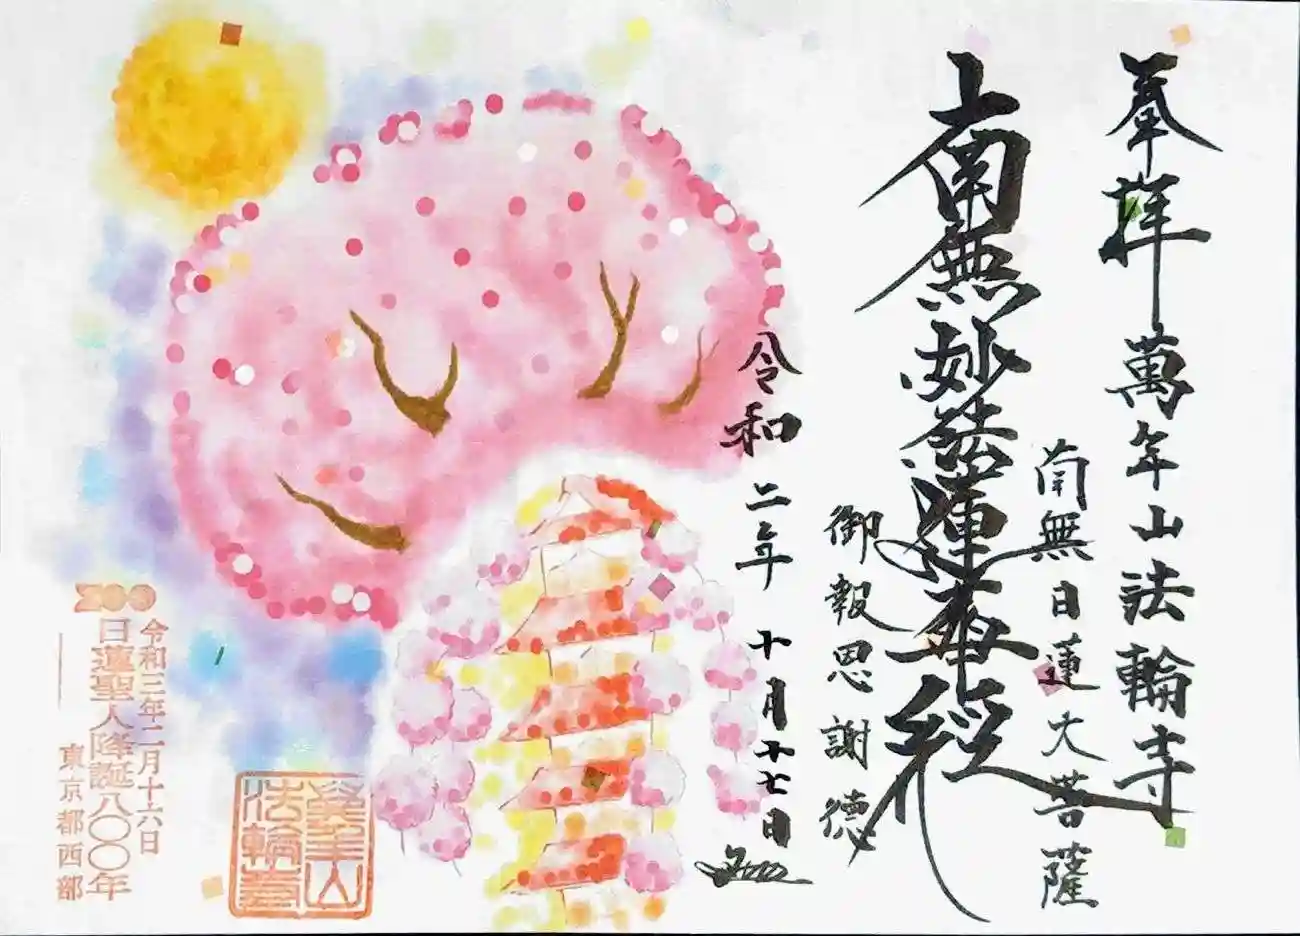 奉拝 萬年山法輪寺
南無日蓮大菩薩
南無妙法蓮華経
御報恩謝徳
令和二年十月十七日
800
令和三年二月十六日
日蓮聖人降誕八〇〇年
東京都西部
萬年山
法輪寺